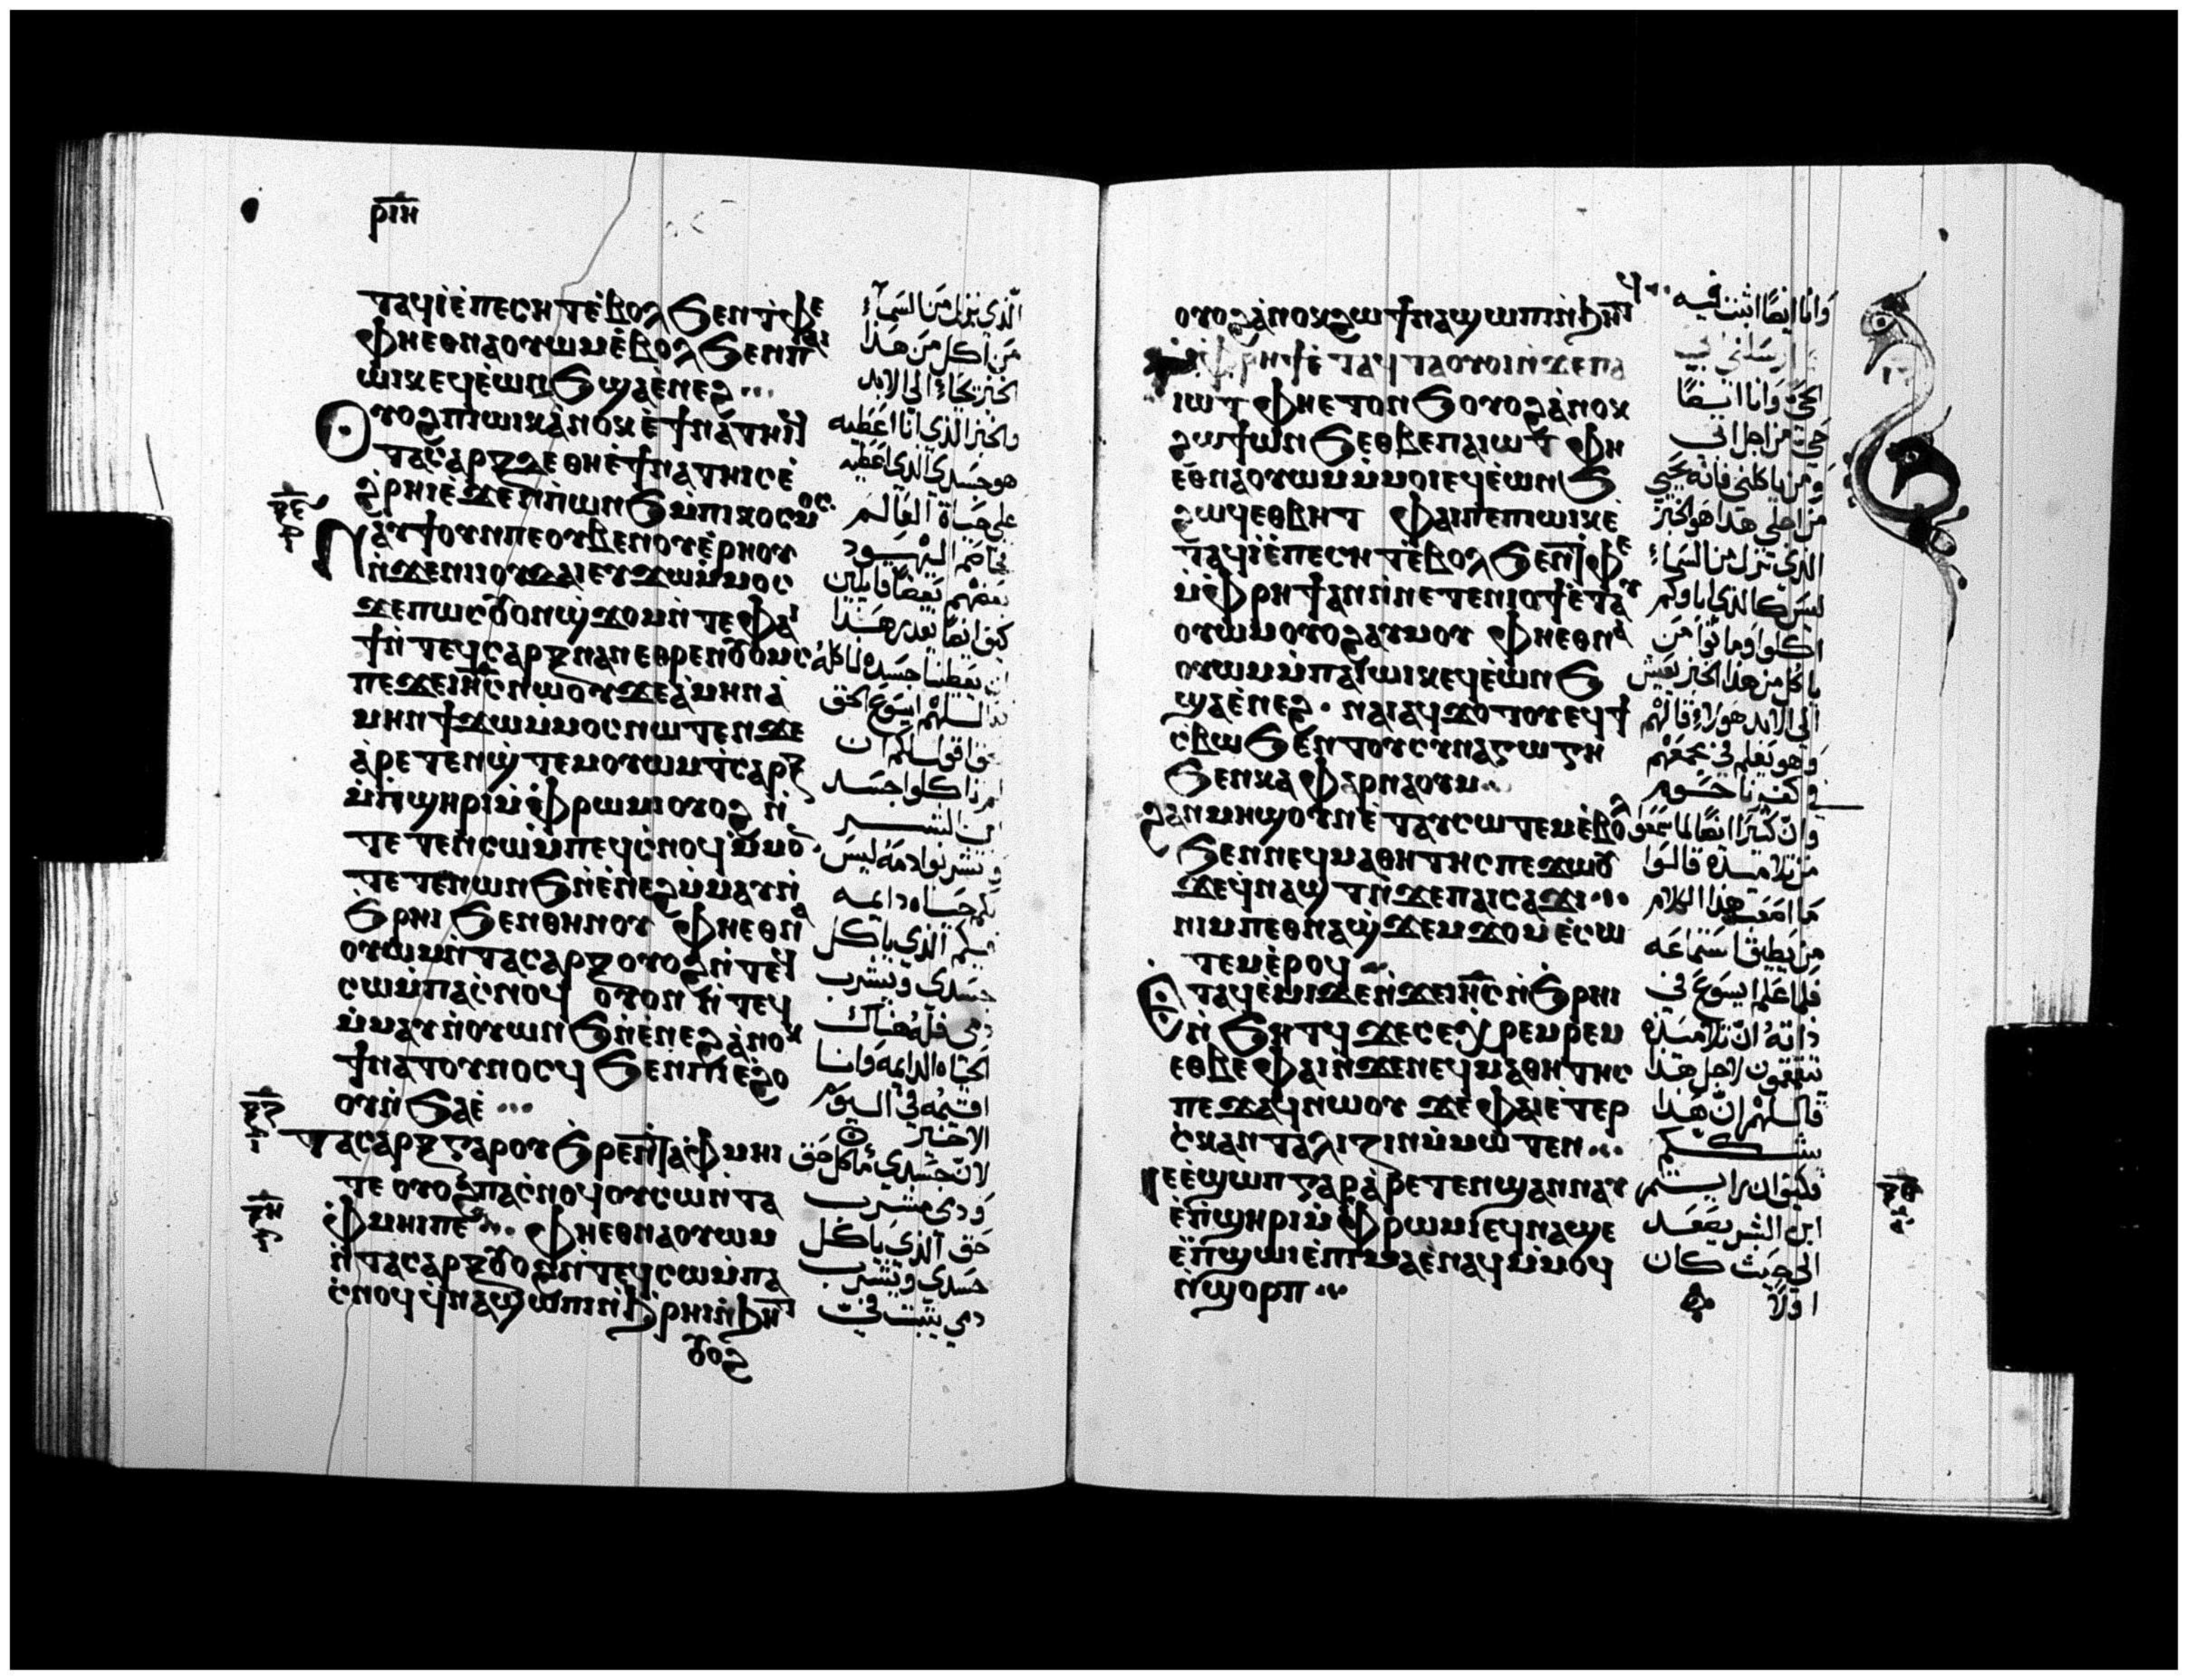 ⲣⲓⲏ
ⲧⲁϥⲓ̀ⲉ̀ⲡⲉⲥⲏⲧⲉ̀ⲃⲟⲗϧⲉⲛⲧ̀ⲫⲉ
ⲫⲏⲉⲑⲛⲁⲟⲩⲱⲙⲉ̀ⲃⲟⲗϧⲉⲛⲡⲁⲓ
ⲱⲓⲕⲉϥⲉ̀ⲱⲛϧϣⲁⲉ̀ⲛⲉϩ
ⲟⲩⲟϩⲡⲓⲱⲓⲕⲁ̀ⲛⲟⲕⲉ̀ϯⲛⲁⲧⲏⲓϥ
ⲧⲁⲥⲁⲣⲝⲧⲉ ⲑⲏⲉ̀ϯⲛⲁⲧⲏⲓⲥⲉ̀
ϩ̀ⲣⲏⲓⲉ̀ϫⲉⲛⲡ̀ⲱⲛϧⲙ̀ⲡⲓⲕⲟⲥⲙⲟⲥ
ⲛⲁⲩϯⲟⲩⲛⲡⲉⲟⲩⲃⲉⲛⲟⲩⲉ̀ⲣⲏⲟⲩ
ⲛ̀ϫⲉⲛⲓⲓⲟⲩⲇⲁⲓⲉⲩϫⲱⲙ̀ⲙⲟⲥ
ϫⲉⲡⲱⲥⲟⲩⲟⲛϣ̀ϫⲟⲙⲛ̀ⲧⲉⲫⲁⲓ
ϯⲛ̀ⲧⲉϥⲥⲁⲣⲝⲛⲁⲛⲉⲑⲣⲉⲛⲟⲩⲟⲙⲥ
ⲡⲉϫⲉⲓⲏⲥⲛⲱⲟⲩϫⲉⲁ̀ⲙⲏⲛⲁ̀
ⲙⲏⲛϯϫⲱⲙ̀ⲙⲟⲥⲛⲱⲧⲉⲛϫⲉ
ⲁ̀ⲣⲉⲧⲉⲛϣ̀ⲧⲉⲙⲟⲩⲱⲙⲧ̀ⲥⲁⲣⲝ
ⲙ̀ⲡ̀ϣⲏⲣⲓⲙ̀ⲫ̀ⲣⲱⲙⲓⲟⲩⲟϩ ⲛ̀
ⲧⲉⲧⲉⲛⲥⲱⲙ̀ⲡⲉϥⲥ̀ⲛⲟϥⲙ̀ⲙⲟⲛ
ⲧⲉⲧⲉⲛⲱⲛϧⲛ̀ⲉ̀ⲛⲉϩⲙ̀ⲙⲁⲩⲛ̀
ϧ̀ⲣⲏⲓϧⲉⲛⲑⲏⲛⲟⲩ ⲫⲏⲉⲑⲛⲁ
ⲟⲩⲱⲙⲛ̀ⲧⲁⲥⲁⲣⲝⲟⲩⲟϩⲛ̀ⲧⲉϥ
ⲥⲱⲙ̀ⲡⲁⲥ̀ⲛⲟϥ ⲟⲩⲟⲛ ⲛ̀ⲧⲉϥ
ⲙ̀ⲙⲁⲩⲛ̀ⲟⲩⲱⲛϧⲛ̀ⲉ̀ⲛⲉϩⲁ̀ⲛⲟⲕ
ϯⲛⲁⲧⲟⲩⲛⲟⲥϥ ϧⲉⲛⲡⲓⲉ̀ϩⲟ
ⲟⲩⲛ̀ϧⲁⲉ̀
ⲧⲁⲥⲁⲣⲝⲅⲁⲣⲟⲩϧ̀ⲣⲉⲛ̀ⲧⲁ̀ⲫ̀ⲙⲏⲓ
ⲧⲉ ⲟⲩⲟϩⲡⲁⲥ̀ⲛⲟϥⲟⲩⲥⲱⲛ̀ⲧⲁ
ⲫ̀ⲙⲏⲓⲡⲉ ⲫⲏⲉⲑⲛⲁⲟⲩⲱⲙ
ⲛ̀ⲧⲁⲥⲁⲣⲝⲟⲩⲟϩⲛ̀ⲧⲉϥⲥⲱⲙ̀ⲡⲁ
ⲥ̀ⲛⲟϥϥ̀ⲛⲁϣⲱⲡⲓⲛ̀ϧ̀ⲣⲏⲓⲛ̀ϧⲏⲧ
ⲟⲩⲟϩ
الّذي نزل من السماء
من اكل من هذا
الخبز يحيا الى الابد
والخبز الذي انا اعطيه
هو جسدي الذي اعطيه
على حياة العالم
فخاصم اليهود
بعضهم بعضا قايلين
كيف يقدر هذا
ان يعطينا جسده لناكله
قال لهم ايسوع الحق
حق اقول لكم ان
لم تاكلوا جسد
ابن البشر
وتشربوا دمه ليس
لكم حياه دايمه
فيكم الذي ياكل
جسدي ويشرب
دمي فله هناك
الحياه الدايمه وانا
اقيمه في اليوم
الاخير
لان جسدي ماكل حق
ودمي مشرب
حق الذي ياكل
جسدي ويشرب
دمي يثبت فيّ
ⲟⲩⲟϩⲁ̀ⲛⲟⲕϩⲱ ϯⲛⲁϣⲱⲡⲓⲛ̀ϧⲏⲧϥ
ⲙ̀ⲫ̀ⲣⲏϯⲉ̀ⲧⲁϥⲧⲁⲟⲩⲟⲓⲛ̀ϫⲉⲡⲁ
ⲓⲱⲧ ⲫⲏⲉⲧⲟⲛϧⲟⲩⲟϩⲁ̀ⲛⲟⲕ
ϩⲱϯⲱⲛϧⲉⲑⲃⲉⲡⲁⲓⲱⲧ ⲫⲏ
ⲉⲑⲛⲁⲟⲩⲱⲙⲙ̀ⲙⲟⲓⲉϥⲉ̀ⲱⲛϧ
ϩⲱϥⲉⲑⲃⲏⲧ ⲫⲁⲓⲡⲉⲡⲓⲱⲓⲕⲉ̀
ⲧⲁϥⲓ̀ⲉ̀ⲡⲉⲥⲏⲧⲉ̀ⲃⲟⲗϧⲉⲛⲧ̀ⲫⲉ
ⲙ̀ⲫ̀ⲣⲏϯⲁⲛⲛ̀ⲛⲉⲧⲉⲛⲓⲟϯⲉ̀ⲧⲁⲩ
ⲟⲩⲱⲙⲟⲩⲟϩⲁⲩⲙⲟⲩ ⲫⲏⲉⲑⲛⲁ
ⲟⲩⲱⲙⲙ̀ⲡⲁⲓⲱⲓⲕⲉϥⲉ̀ⲱⲛϧ
ϣⲁⲉ̀ⲛⲉϩ ⲛⲁⲓⲁϥϫⲟⲧⲟⲩⲉϥϯ
ⲥ̀ⲃⲱϧⲉⲛⲧⲟⲩⲥⲩⲛⲁⲅⲱⲅⲏ
ϧⲉⲛⲕⲁⲫⲁⲣⲛⲁⲟⲩⲙ
ϩⲁⲛⲙⲏϣⲟⲩⲛⲉ̀ⲧⲁⲩⲥⲱⲧⲉⲙⲉ̀ⲃⲟⲗ
ϧⲉⲛⲛⲉϥⲙⲁⲑⲏⲧⲏⲥⲡⲉϫⲱⲟⲩ
ϫⲉϥ̀ⲛⲁϣⲧⲛ̀ϫⲉⲡⲁⲓⲥⲁϫⲓ
ⲛⲓⲙⲡⲉⲑⲛⲁϣ̀ϫⲉⲙϫⲟⲙⲉ̀ⲥⲱ
ⲧⲉⲙⲉ̀ⲣⲟϥ
ⲉ̀ⲧⲁϥⲉ̀ⲙⲓⲇⲉⲛ̀ϫⲉⲓⲏⲥⲛ̀ϧ̀ⲣⲏⲓ
ⲛ̀ϧⲏⲧϥ ϫⲉⲥⲉⲭ̀ⲣⲉⲙⲣⲉⲙ
ⲉⲑⲃⲉⲫⲁⲓⲛ̀ϫⲉⲛⲉϥⲙⲁⲑⲏⲧⲏⲥ
ⲡⲉϫⲁϥⲛⲱⲟⲩ ϫⲉⲫⲁⲓⲉⲧⲉⲣ
ⲥ̀ⲕⲁⲛⲇⲁⲗⲓⲍⲓⲛⲙ̀ⲙⲱⲧⲉⲛ
ⲉ̀ϣⲱⲡⲅⲁⲣⲁ̀ⲣⲉⲧⲉⲛϣⲁⲛⲛⲁⲩ
ⲉ̀ⲡ̀ϣⲏⲣⲓⲙ̀ⲫ̀ⲣⲱⲙⲓⲉϥⲛⲁϣⲉ
ⲉ̀ⲡ̀ϣⲱⲓⲉ̀ⲡⲓⲙⲁⲉ̀ⲛⲁϥⲙ̀ⲙⲟϥ
ⲛ̀ϣⲟⲣⲡ
وانا ايضا اثبت فيه
ارسلني ابي
الحي وانا ايضا
حي من اجل ابي
ومن ياكلني فانه يحيي
من اجلي هذا هو الخبز
الذي نزل من السماء
ليس كالذي اباوكم
اكلوا وماتوا من
ياكل من هذا الخبز يعيش
الى الابد هولاء قالهم
وهو يعلم في مجمعهم
في كفرناحوم
وان كثيرا ايضا لما سمعوا
من تلاميذه قالوا
ما اصعب هذا الكلام
من يطيق استماعه
فلما علم ايسوع في
ذاته ان تلاميذه
يتقمقمون لاجل هذا
قال لهم ان هذا
يشككم
فكيف ان رايتم
ابن البشر يصعد
الى حيث كان
اولا